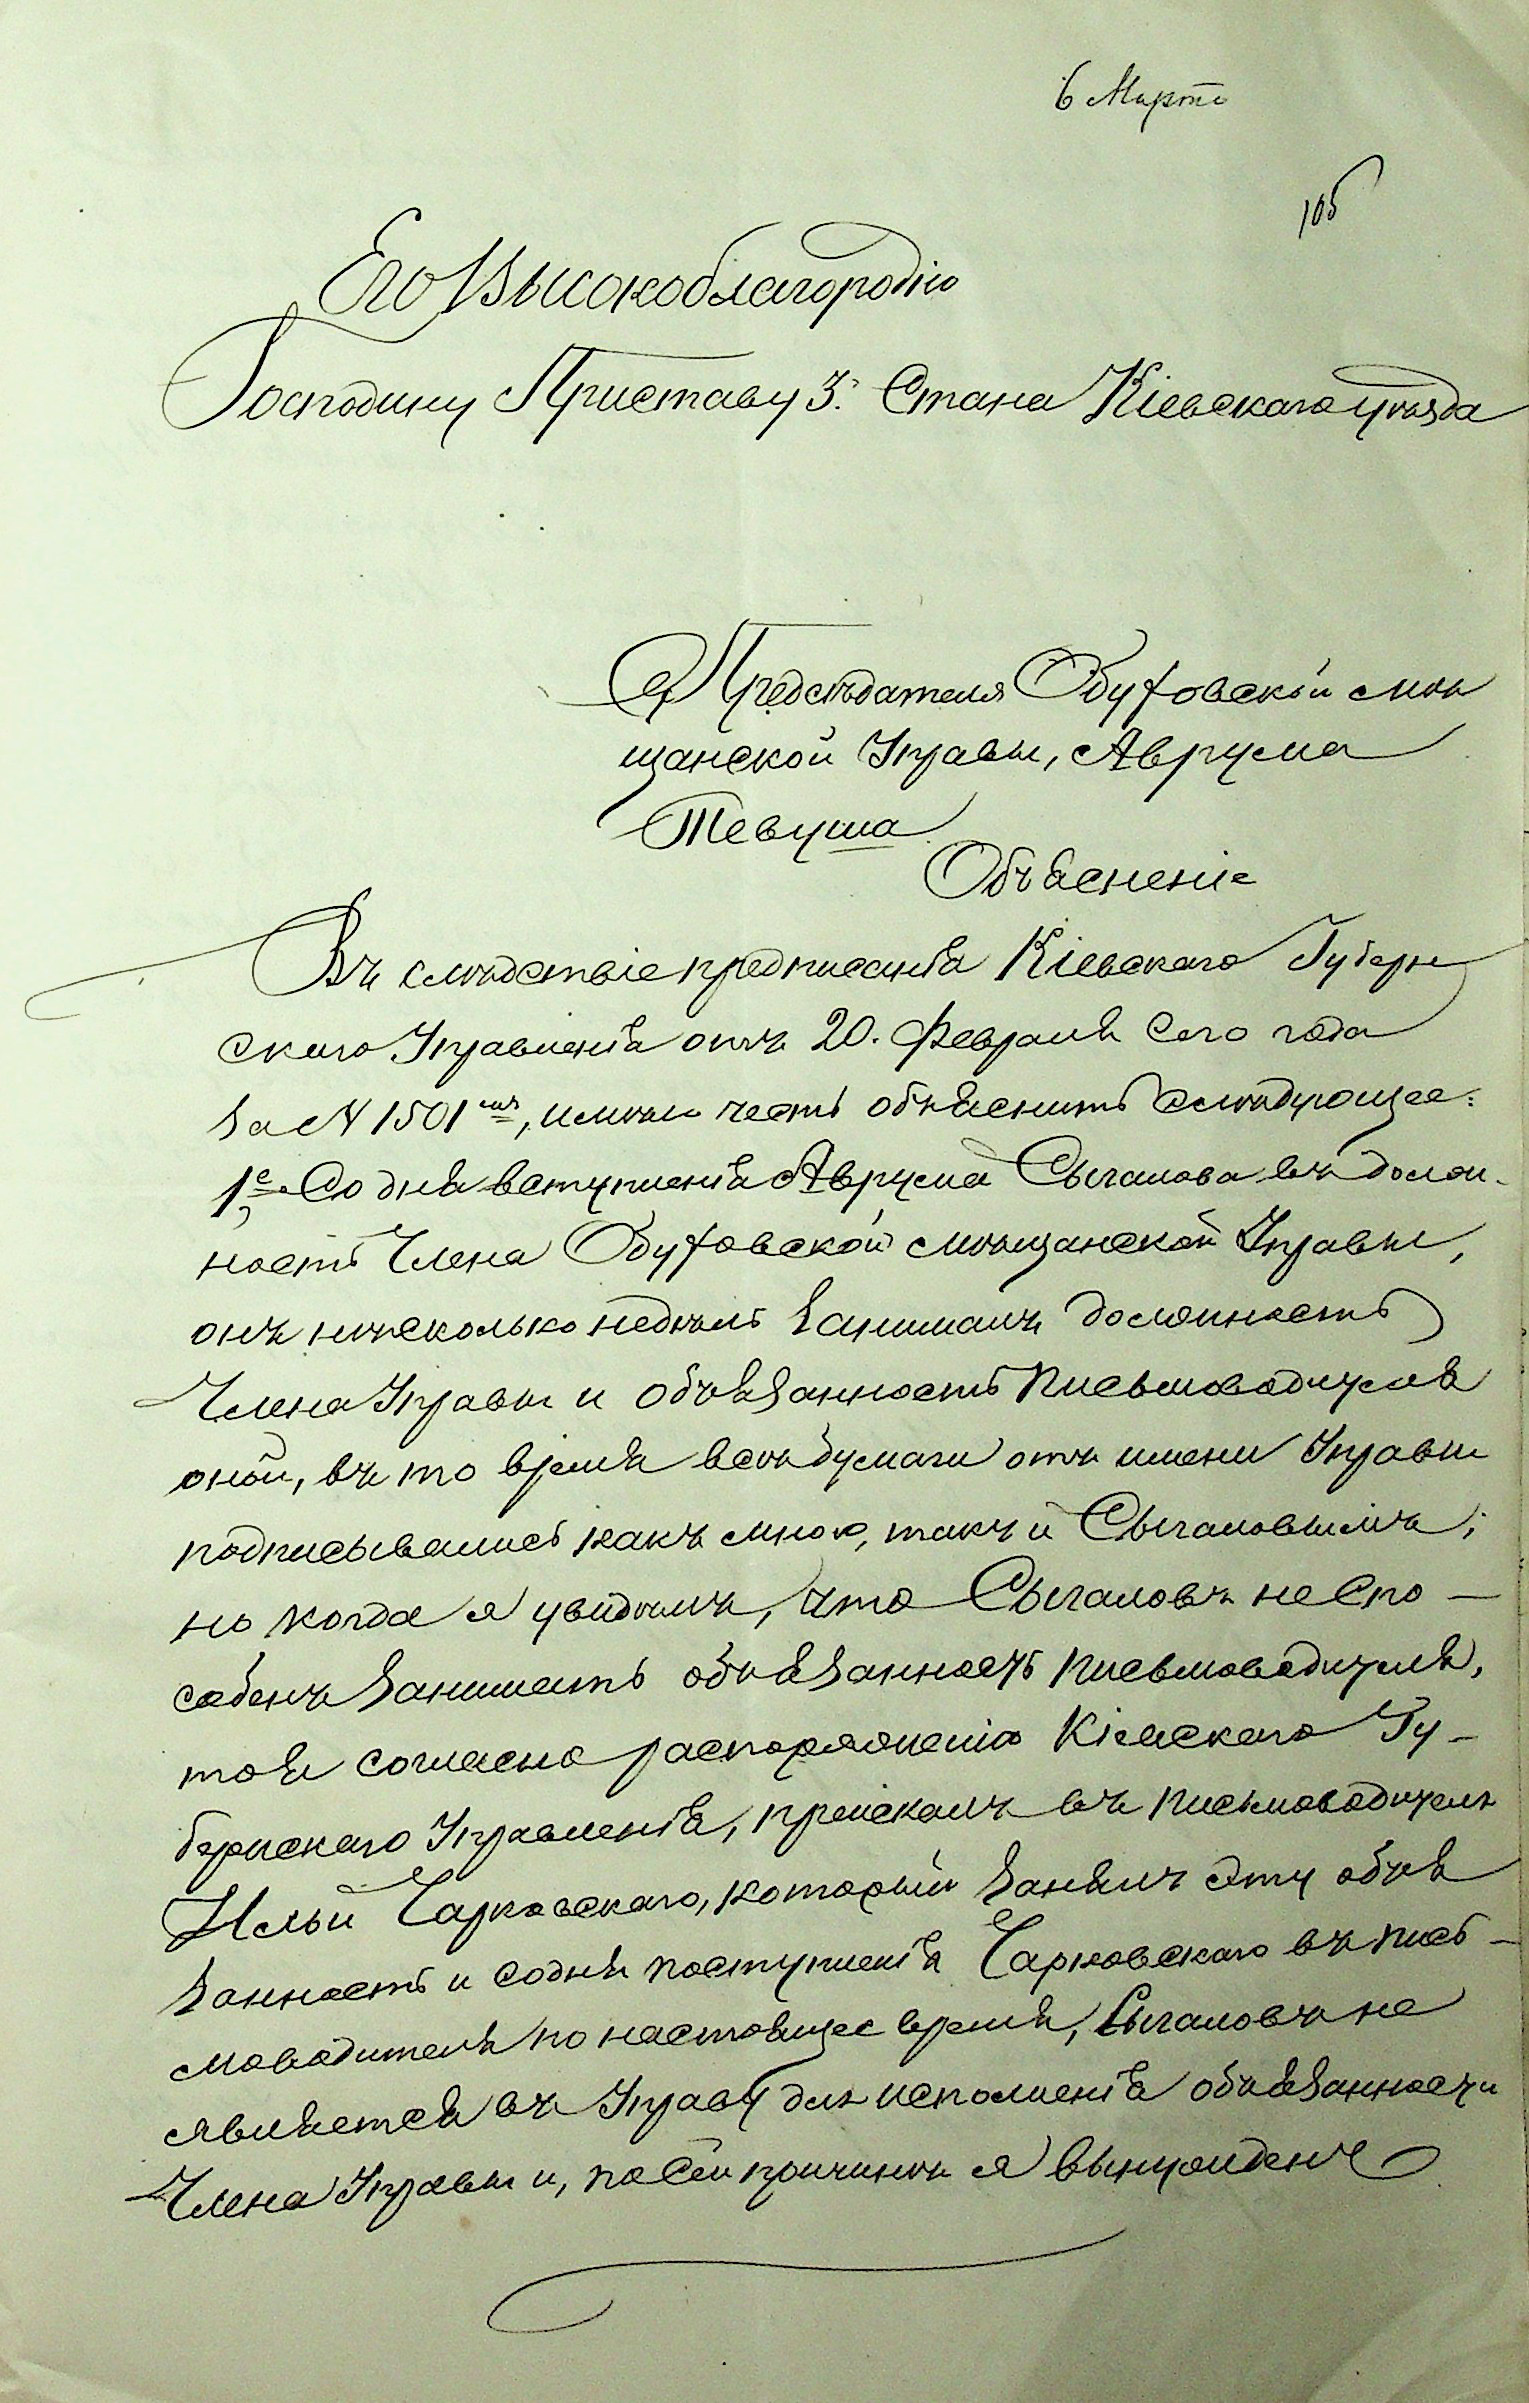 6 Марта
105
Его Высокоблагородію
Господину Приставу 3. Стана Кіевскаго уѣзда
Предсѣдателя Обуховской мѣ
щанской Управы, Аврума
Тевуша
Объясненіе
Въ слѣдствіе предписанія Кіевскаго Губерн
скаго Управленія отъ 20. Февраля сего года
за № 1501мъ, имѣю честь объяснить слѣдующее:
1е, Со дня вступленія Аврума Сыгалова въ долж-
ность Члена Обуховской мѣщанской Управы,
онъ нѣсколько недѣль занималъ должность
Члена Управы и объязанность письмоводителя
оной, въ то время всѣ бумаги отъ имени Управы
подписывались какъ мною, такъ и Сыгаловымъ;
но когда я увидѣлъ, что Сыгаловъ не спо-
собенъ занимать объязанность письмоводителя,
то я согласно распоряженію Кіевскаго Гу-
бернскаго Управленія, пріискалъ въ письмоводителя
Ильи Чарковскаго, который занялъ эту объя
занность и со дня поступленія Чарковскаго въ пись-
моводителя по настоящее время, Сыгаловъ не
является въ Управу для исполненія объязанности
Члена Управы и, по сей причинѣ я вынужденъ